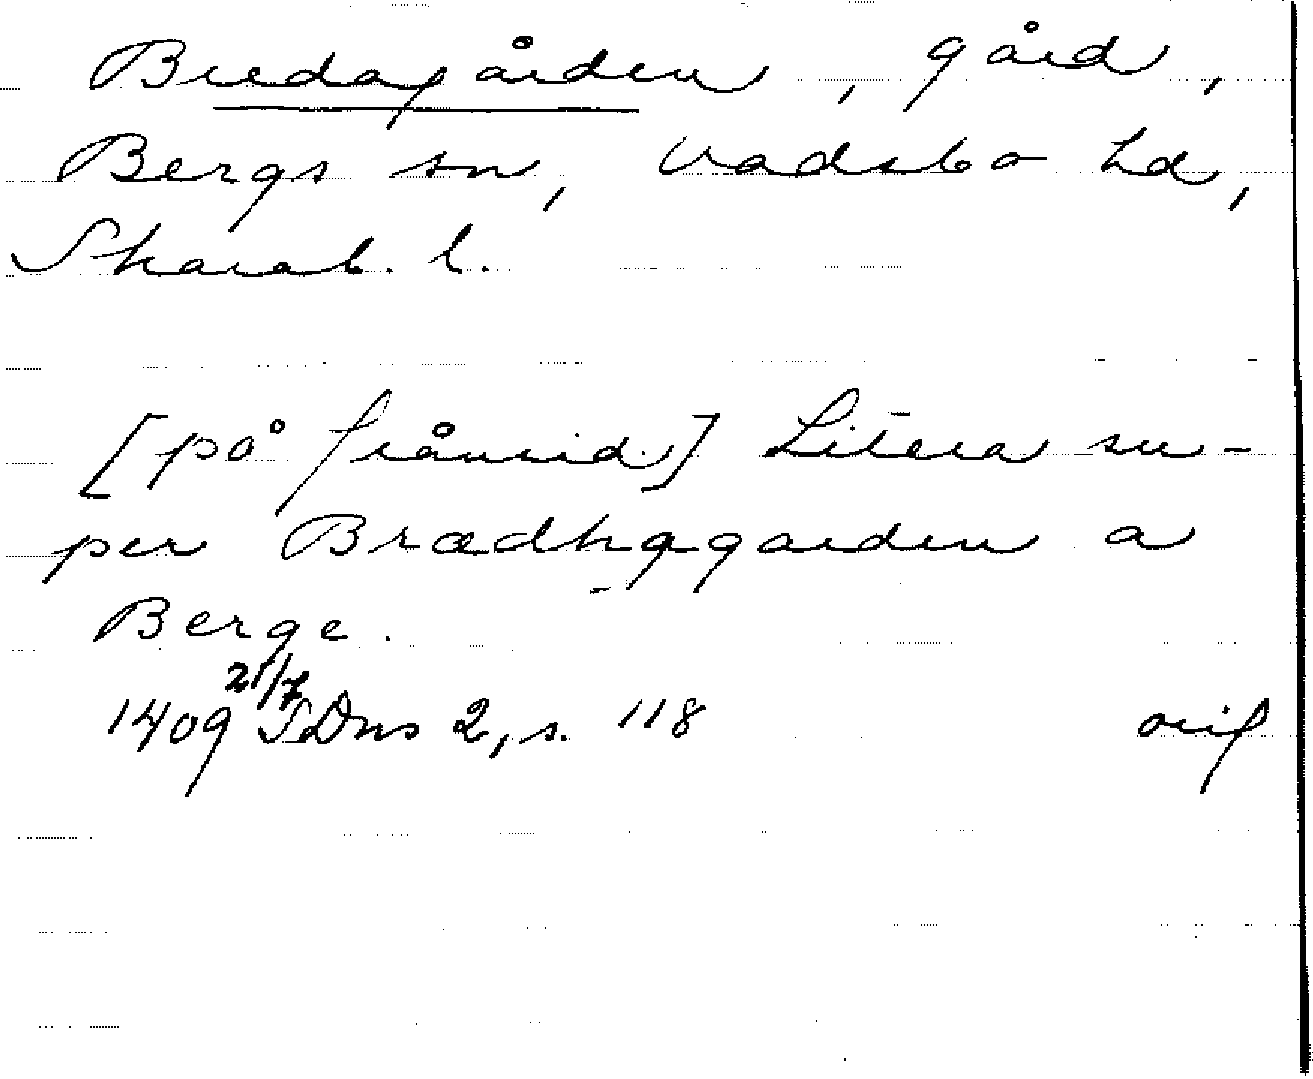 Bredagården, gård,
Bergs sn, Vadsbo hd,
Skarab. l.
[på frånsid.] Litera su-
per Brædhagarden a
Berge.
1409 21/7 SDns 2, s. 118 orig